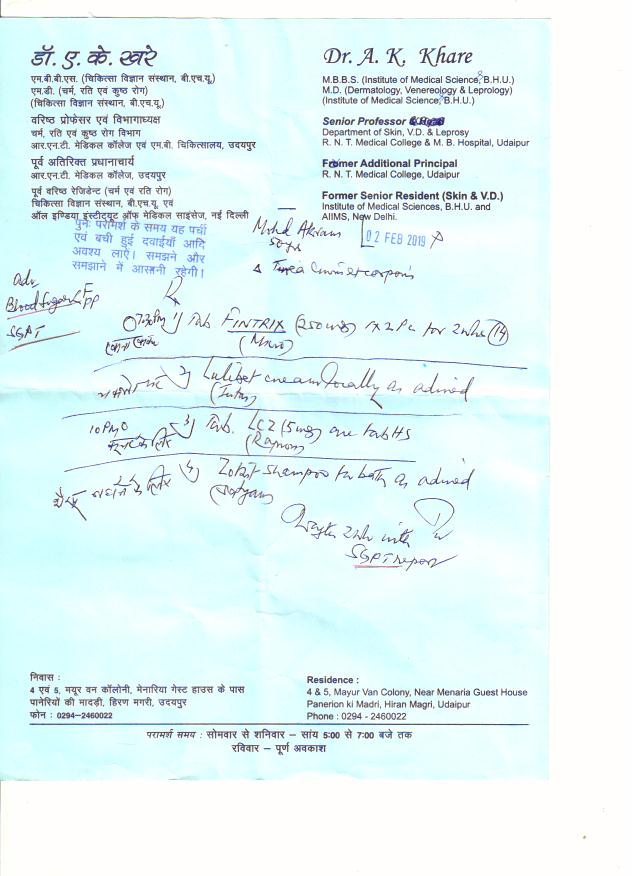 डॉ. ए. के. खरे
एम.बी.बी.एस. (चिकित्सा विज्ञान संस्थान, बी.एच.यू.)
एम.डी. (चर्म, रति एवं कुष्ठ रोग)
(चिकित्सा विज्ञान संस्थान, बी.एच.यू.)
वरिष्ठ प्रोफेसर एवं विभागाध्यक्ष
चर्म, रति एवं कुष्ठ रोग विभाग
आर.एन.टी. मेडिकल कॉलेज एवं एम.बी. चिकित्सालय, उदयपुर
पूर्व अतिरिक्त प्रधानाचार्य
आर.एन.टी. मेडिकल कॉलेज, उदयपुर
पूर्व वरिष्ठ रेजिडेंट (चर्म एवं रति रोग)
चिकित्सा विज्ञान संस्थान, बी.एच.यू. एवं
ऑल इण्डिया इंस्टीट्यूट ऑफ मेडिकल साइंसेज, नई दिल्ली
Dr. A. K. Khare
M.B.B.S. (Institute of Medical Science, B.H.U.)
M.D. (Dermatology, Venereology & Leprology)
(Institute of Medical Science, B.H.U.)
Senior Professor
Department of Skin, V.D. & Leprosy
R. N. T. Medical College & M. B. Hospital, Udaipur
Former Additional Principal
R. N. T. Medical College, Udaipur
Former Senior Resident (Skin & V.D.)
Institute of Medical Sciences, B.H.U. and
AIIMS, New Delhi.
पुनः परामर्श के समय यह पर्ची
एवं बची हुई दवाईयाँ आदि
अवश्य लाऐं। समझने और
समझाने में आसानी रहेगी।
Mohd Akram
50yr
02 FEB 2019
Adv
Blood Sugar F PP
SGPT
1) Tab FINTRIX (250mg) 1x2 PC for 2 wks (14)
(Micro)
2) Lulibet cream locally as advised
10PM
3) Tab. LCZ (5mg) one tab HS
4) shampoo for bath as advised
2 wk with
SGPT report
निवास :
4 एवं 5, मयूर वन कॉलोनी, मेनारिया गेस्ट हाउस के पास
पानेरियों की मादड़ी, हिरण मगरी, उदयपुर
फोन : 0294-2460022
Residence :
4 & 5, Mayur Van Colony, Near Menaria Guest House
Panerion ki Madri, Hiran Magri, Udaipur
Phone : 0294 - 2460022
परामर्श समय : सोमवार से शनिवार – सांय 5:00 से 7:00 बजे तक
रविवार – पूर्ण अवकाश